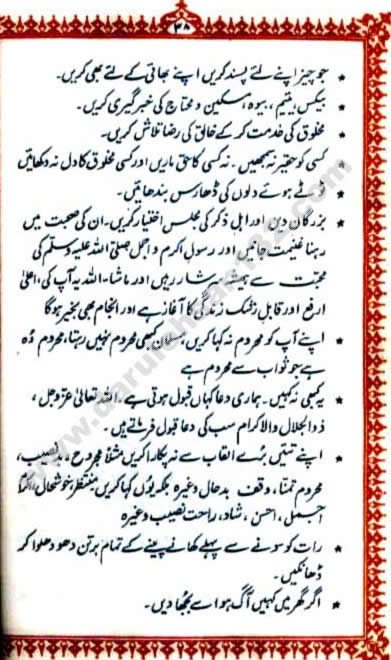 ۳۸
★ جو چیز اپنے لئے پسند کریں اپنے بھائی کے لئے بھی کریں۔
★ بیکس، یتیم، بیوہ، مسکین و محتاج کی خبرگیری کریں۔
★ مخلوق کی خدمت کر کے خالق کی رضا تلاش کریں۔
★ کسی کو حقیر نہ سمجھیں۔ نہ کسی کا حق ماریں اور کسی مخلوق کا دل نہ دکھائیں
★ ٹوٹے ہوئے دلوں کی ڈھارس بندھائیں۔
★ بزرگان دین اور اہل ذکر کی مجلس اختیار کریں۔ ان کی صحبت میں
رہنا غنیمت جانیں اور رسول اکرم و اجمل صلی اللہ علیہ وسلم کی
محبت سے ہمیشہ سرشار رہیں اور ماشاء اللہ یہ آپ کی اعلیٰ
ارفع اور قابل رشک زندگی کا آغاز ہے اور انجام بھی بخیر ہوگا
★ اپنے آپ کو محروم نہ کہا کریں، مسلمان کبھی محروم نہیں رہتا، محروم وہ
ہے جو ثواب سے محروم ہے
★ یہ کبھی نہ کہیں۔ ہماری دعا کہاں قبول ہوتی ہے۔ اللہ تعالیٰ عزوجل،
ذوالجلال والاکرام سب کی دعا قبول فرماتے ہیں۔
★ اپنے تئیں برے القاب سے نہ پکارا کریں مثلاً مجروح، بدنصیب،
محروم تمنا، وقف بدحال وغیرہ بلکہ یوں کہا کریں منتظر، خوشحال،
اجمل، احسن، شاد، راحت نصیب وغیرہ
★ رات کو سونے سے پہلے کھانے پینے کے تمام برتن دھو دھلوا کر
ڈھانکیں۔
★ اگر گھر میں کہیں آگ ہو اسے بجھا دیں۔